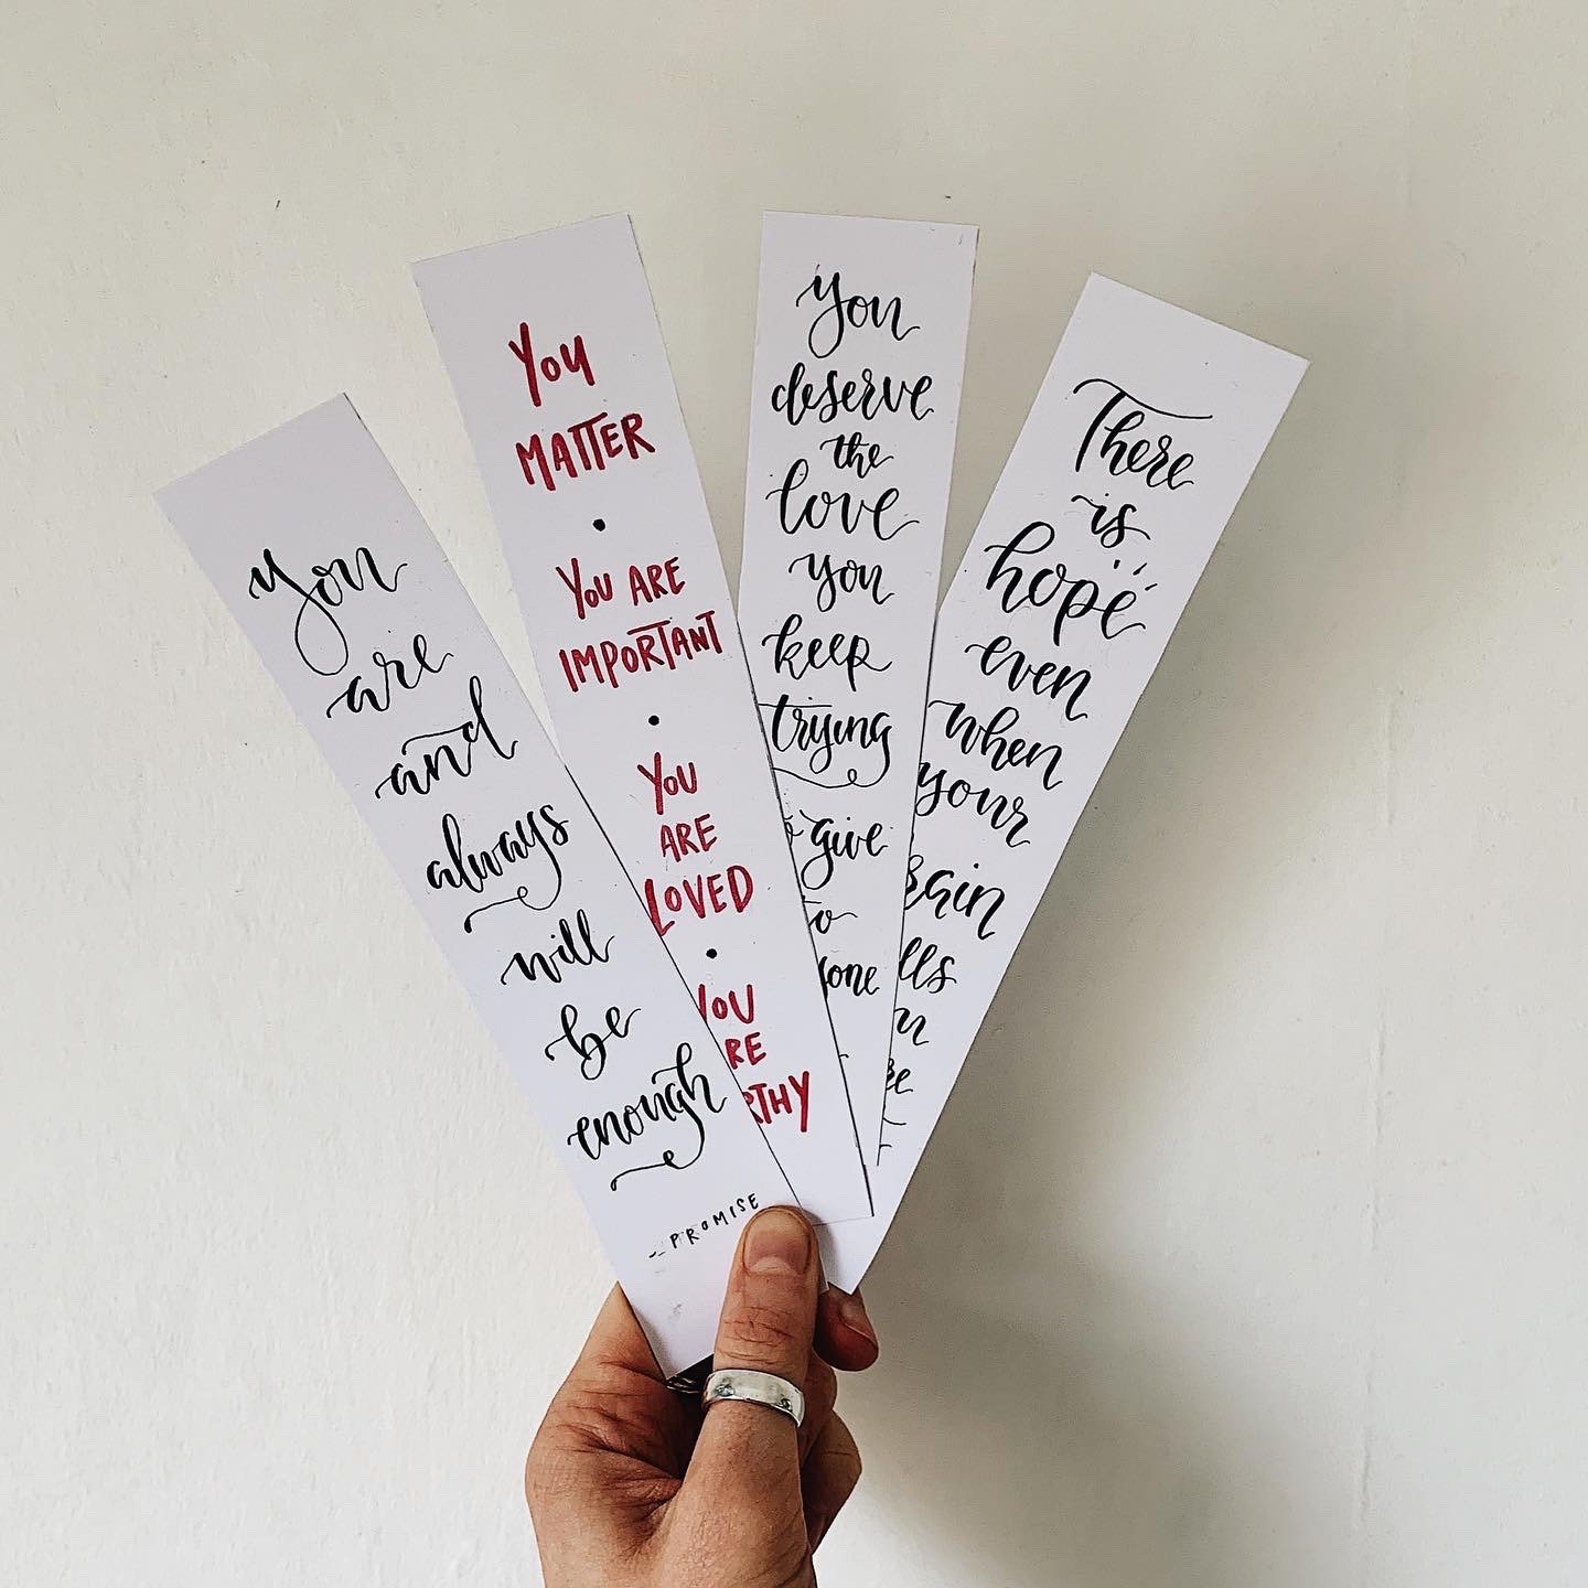 you
are
and
always
will
be
enough
PROMISE
You
MATTER
•
YOU ARE
IMPORTANT
•
YOU
ARE
LOVED
•
YOU
you
deserve
the
love
you
keep
trying
give
There
is
hope
even
when
your